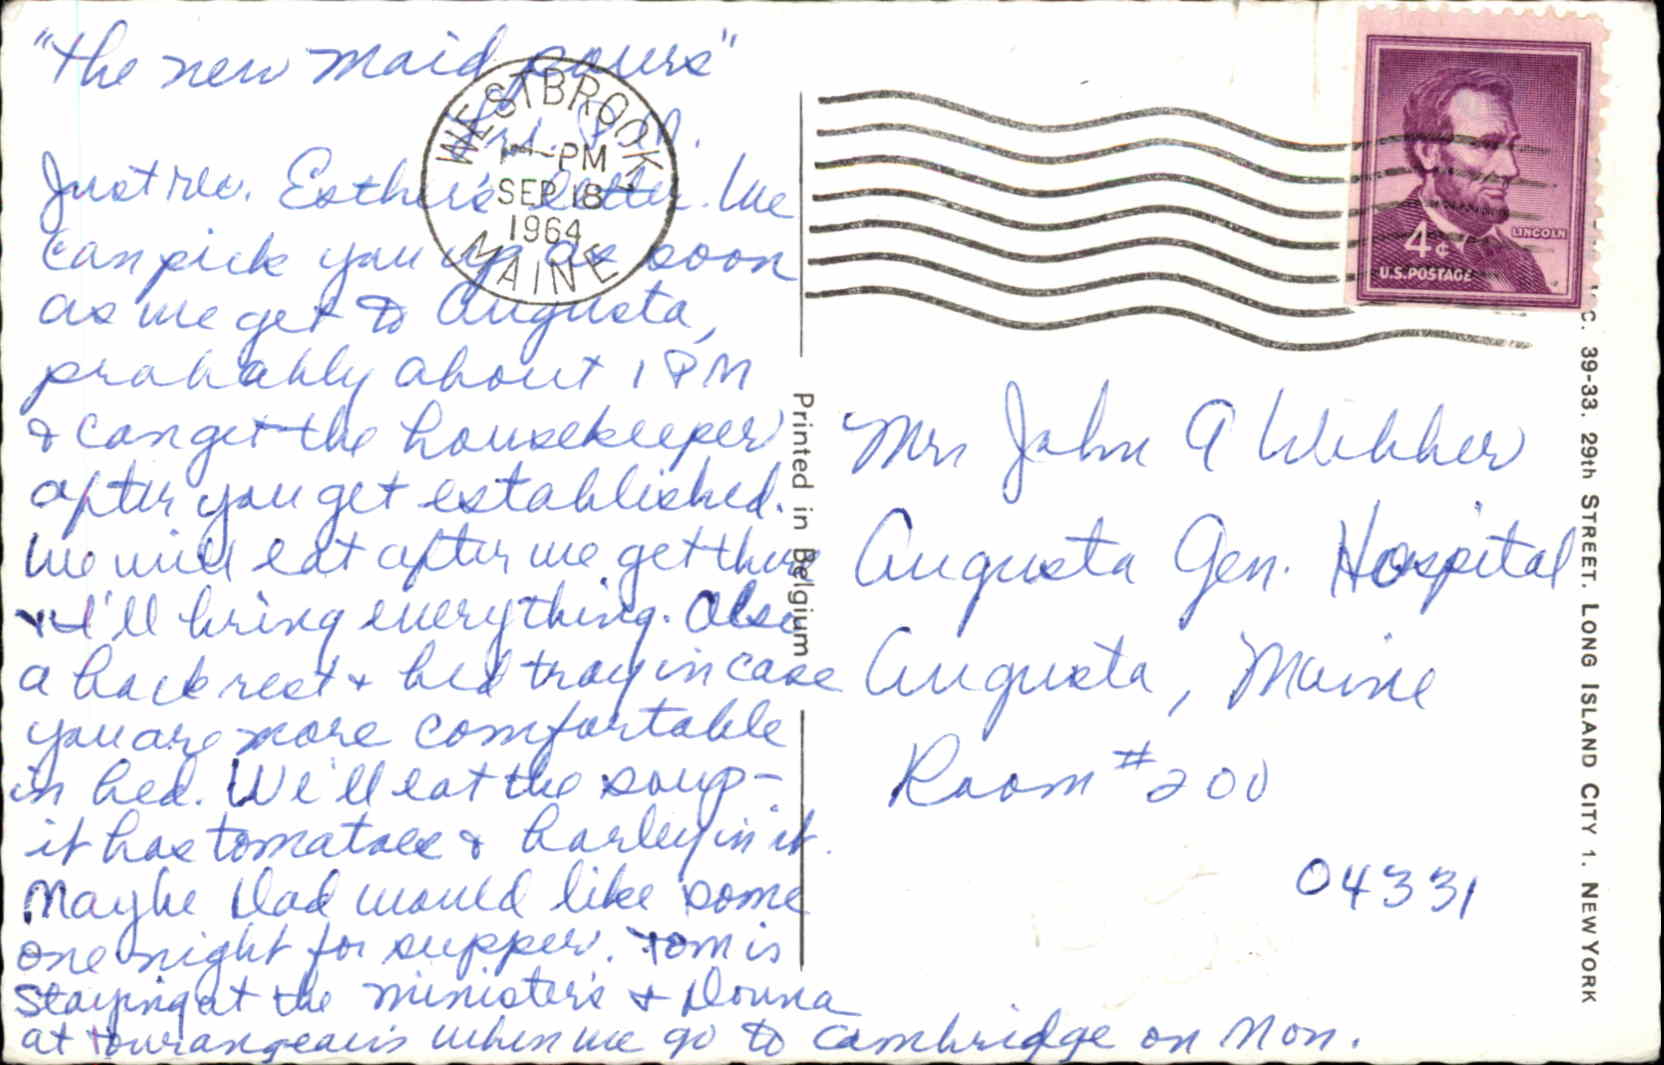 "The new maid pours"
Fri. P.M.
Just rec. Esther's letter. We
can pick you up as soon
as we get to Augusta,
probably about 1 PM
& can get the housekeeper
after you get established.
We will eat after we get there
& I'll bring everything. Also
a back rest & bed tray in case
you are more comfortable
in bed. We'll eat the soup -
it has tomatoes & barley in it.
Maybe Dad would like some
one night for supper. Tom is
staying at the minister's & Donna
at Tourangeau's when we go to Cambridge on Mon.
WESTBROOK
1 - PM
SEP 18
1964
MAINE
LINCOLN
4¢
U.S. POSTAGE
Printed in Belgium
Mrs John A Webber
Augusta Gen. Hospital
Augusta, Maine
Room #200
04331
C. 39-33. 29th STREET. LONG ISLAND CITY 1. NEW YORK